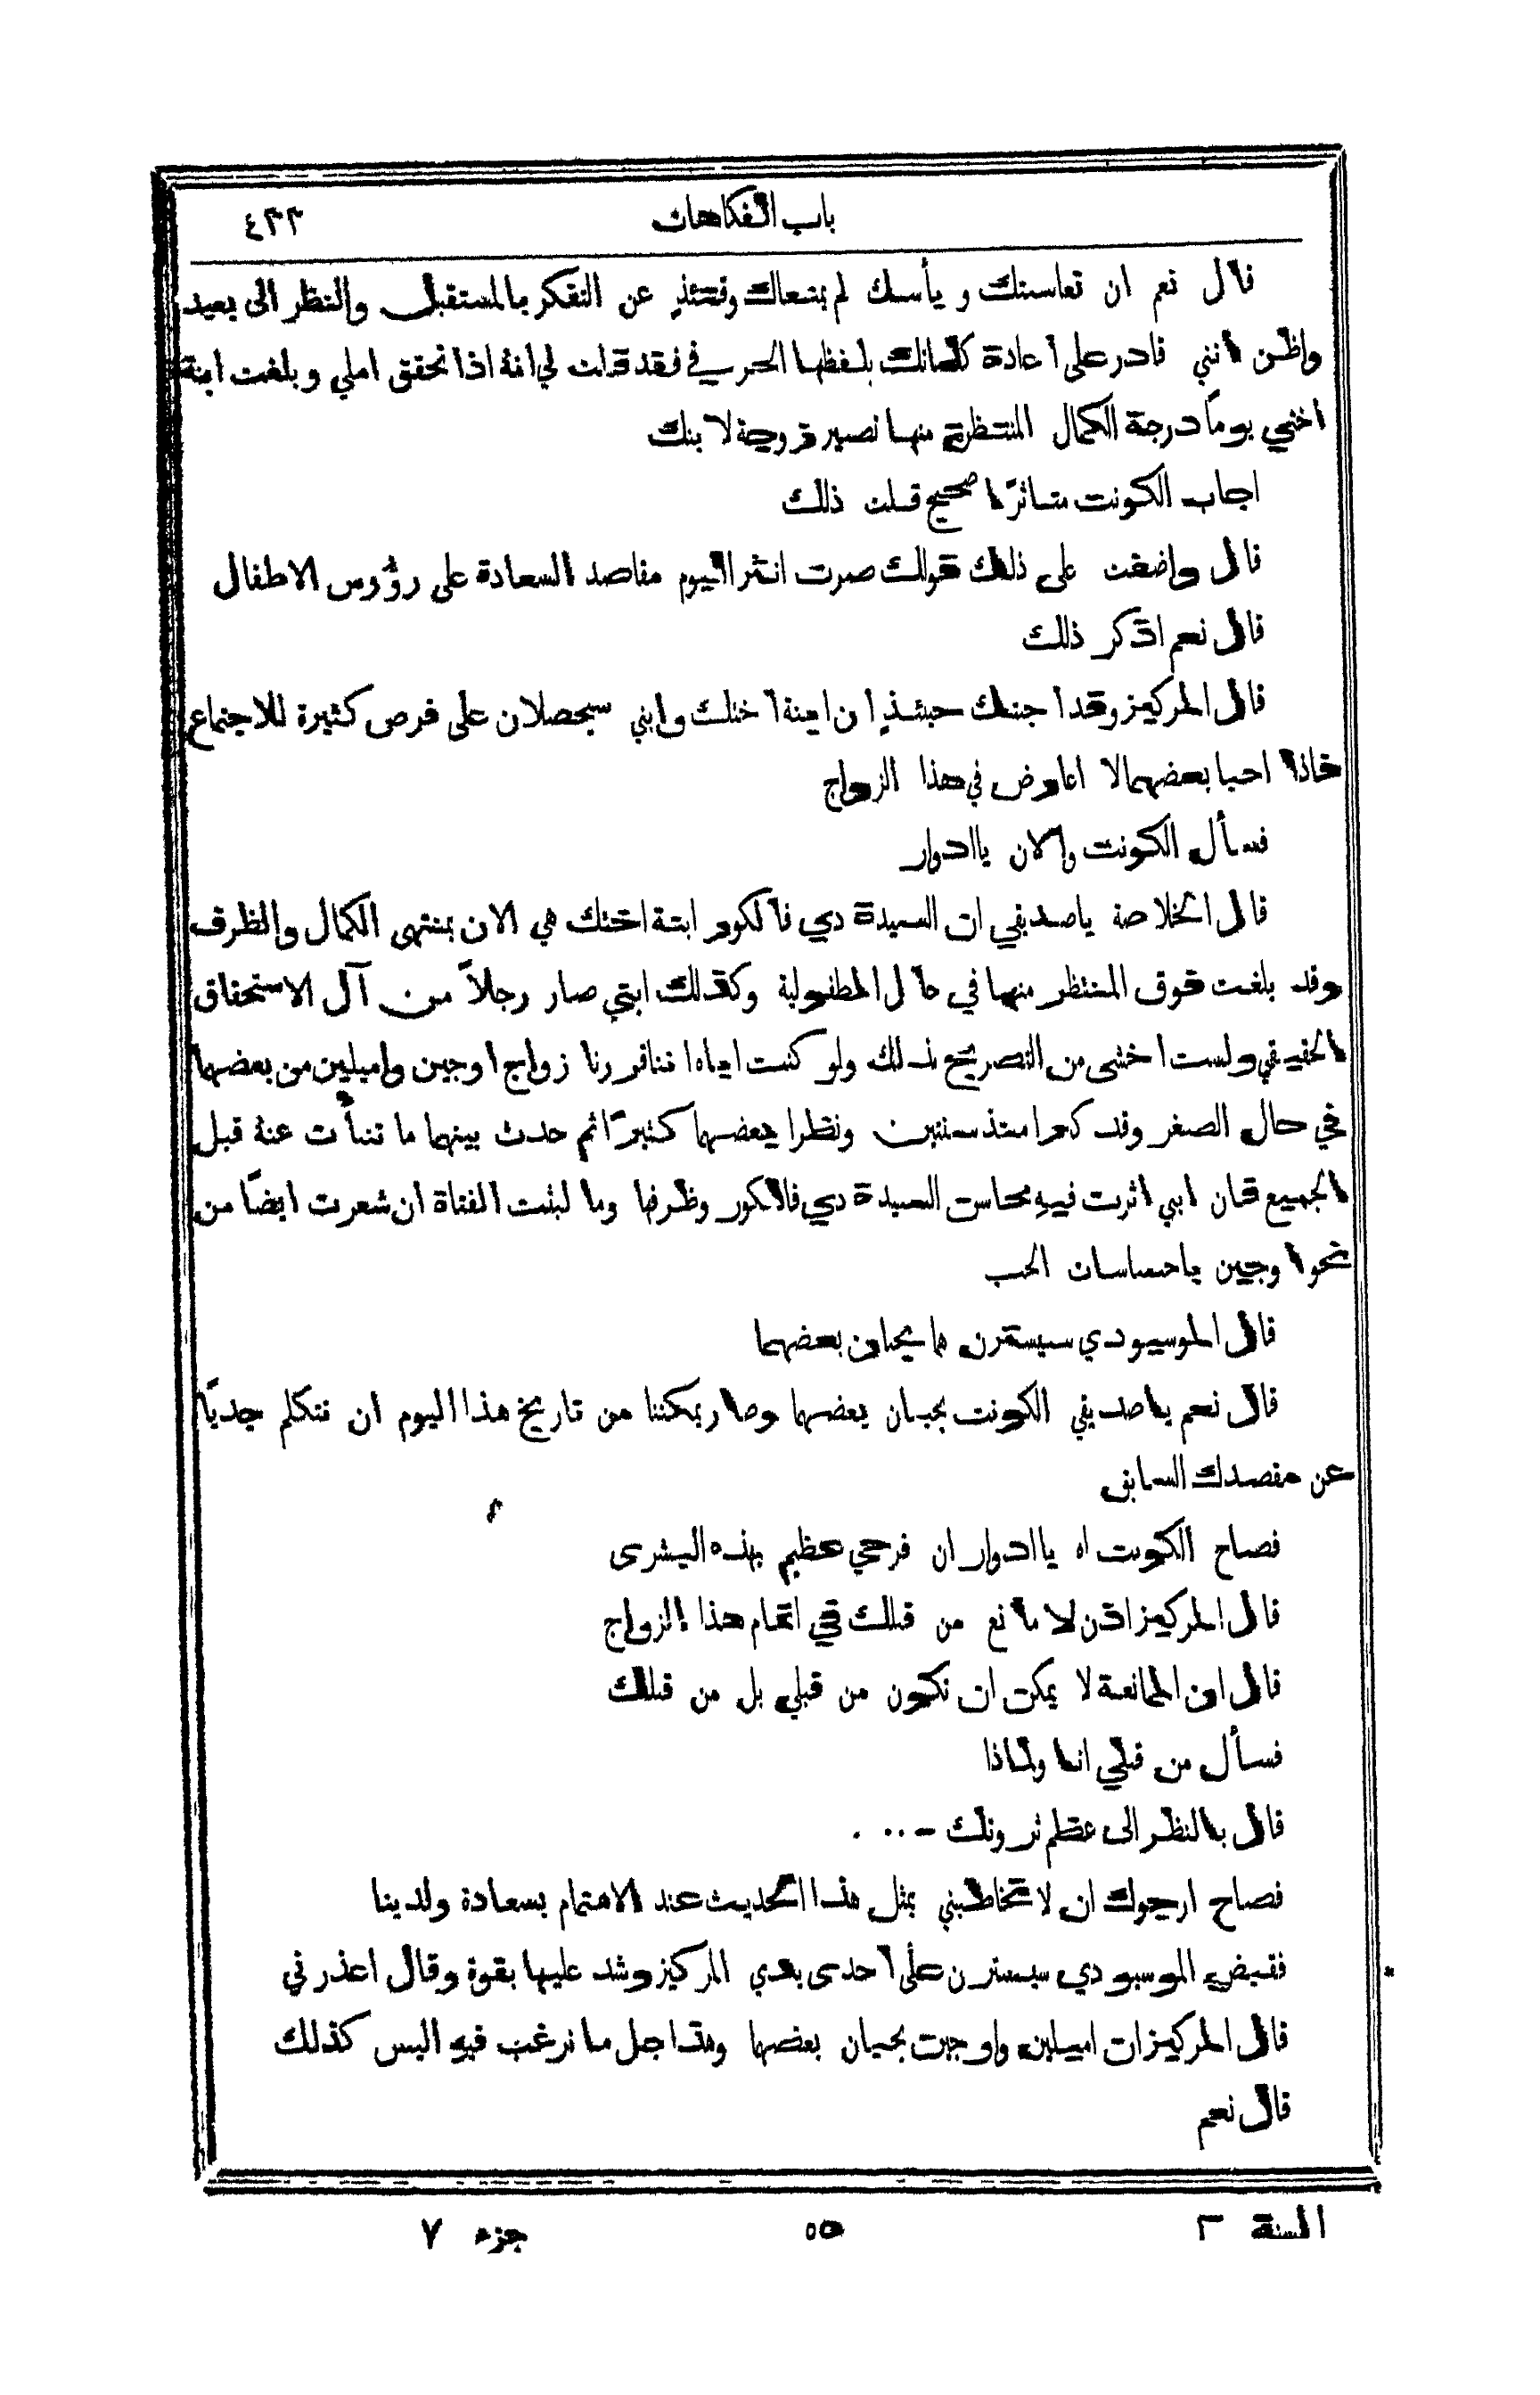 باب الفكاهات ٤٣٣
قال نعم ان تعاستك ويأسك لم يمنعاك وقتئذٍ عن التفكر بالمستقبل والنظر الى بعيد
واظن انني قادر على اعادة كلماتك بلفظها الحرفي فقد قلت لي انهُ اذا تحقق املي وبلغت ابنة
اختي يوماً درجة الكمال المنتظرة منها تصير زوجة لابنك
اجاب الكونت متاثرًا صحيح قلت ذلك
قال واضفت على ذلك قولك صرت انثر اليوم مقاصد السعادة على رؤوس الاطفال
قال نعم اذكر ذلك
قال المركيز وقد اجبتك حينئذٍ ان ابنة اختك وابني سيحصلان على فرص كثيرة للاجتماع
فاذا احبا بعضهما لا اعارض في هذا الزواج
فسأل الكونت والان يا ادوار
قال الخلاصة ياصديقي ان السيدة دي فالكور ابنة اختك هي الان بمنتهى الكمال والظرف
وقد بلغت فوق المنتظر منها في حال الطفولية وكذلك ابني صار رجلاً من آل الاستحقاق
الحقيقي ولست اخشى من التصريح بذلك ولو كنت اباه اننا قررنا زواج اوجين واميلين من بعضها
في حال الصغر وقد كبرا منذ سنتين ونظرا بعضها كثيرًا ثم حدث بينهما ما تنبأت عنهُ قبل
الجميع فان ابني اثرت فيهِ محاسن السيدة دي فالكور وظرفها وما لبثت الفتاة ان شعرت ايضًا من
نحو اوجين باحساسات الحب
قال الموسيو دي سيسترن هما يحبان بعضهما
قال نعم ياصديقي الكونت يحبان بعضها وصار يمكننا من تاريخ هذا اليوم ان نتكلم جديًا
عن مقصدك السابق
فصاح الكونت اه يا ادوار ان فرحي عظيم بهذه البشرى
قال المركيز اذن لا مانع من قبلك في اتمام هذا الزواج
قال ان الممانعة لا يمكن ان تكون من قبلي بل من قبلك
فسأل من قبلي انا ولماذا
قال بالنظر الى عظم ثروتك – . . .
فصاح ارجوك ان لا تخاطبني بمثل هذا الحديث عند الاهتمام بسعادة ولدينا
فقبض الموسيو دي سيسترن على احدى يدي المركيز وشد عليها بقوة وقال اعذرني
قال المركيز ان اميلين واوجين يحبان بعضها وهذا جل ما نرغب فيهِ اليس كذلك
قال نعم
السنة ٢ ٥٥ جزء ٧